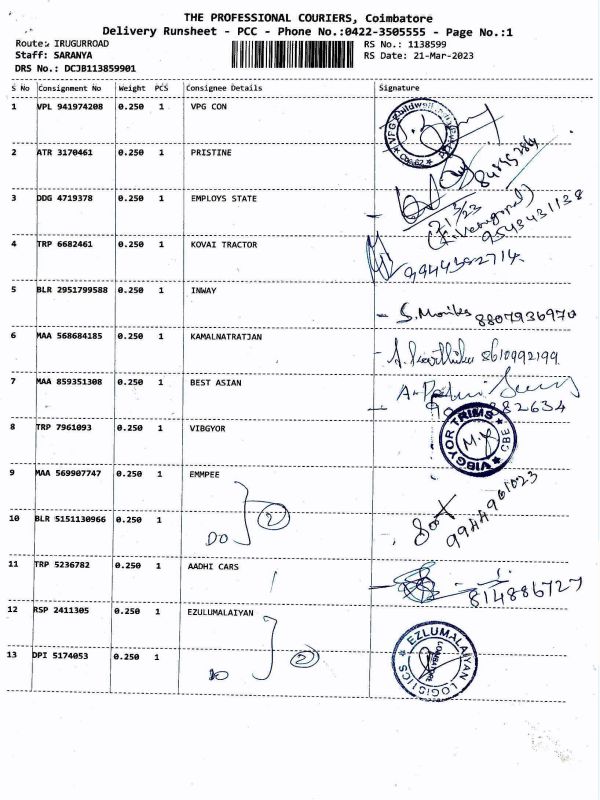 THE PROFESSIONAL COURIERS, Coimbatore
Delivery Runsheet - PCC - Phone No.:0422-3505555 - Page No.:1
Route: IRUGURROAD RS No.: 1138599
Staff: SARANYA RS Date: 21-Mar-2023
DRS No.: DCJB113859901
S No Consignment No Weight PCS Consignee Details Signature
1 VPL 941974208 0.250 1 VPG CON
2 ATR 3170461 0.250 1 PRISTINE
84895284
3 DDG 4719378 0.250 1 EMPLOYS STATE
21/3/23
9543431138
4 TRP 6682461 0.250 1 KOVAI TRACTOR
9944392714
5 BLR 2951799588 0.250 1 INWAY
S. Monika 8807936970
6 MAA 568684185 0.250 1 KAMALNATRATJAN
8610992199
7 MAA 859351308 0.250 1 BEST ASIAN
882634
8 TRP 7961093 0.250 1 VIBGYOR
VIBGYOR TRIMS CBE
9 MAA 569907747 0.250 1 EMMPEE
2
10 BLR 5151130966 0.250 1
DO
9944961023
11 TRP 5236782 0.250 1 AADHI CARS
814886727
12 RSP 2411305 0.250 1 EZULUMALAIYAN
EZLUMALAIYAN LOGISTICS
13 DPI 5174053 0.250 1
DO 2